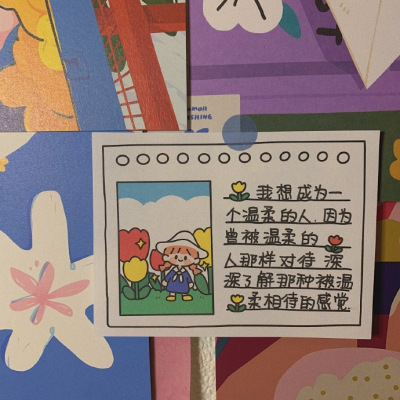 我想成为一
个温柔的人,因为
曾被温柔的
人那样对待 深
深了解那种被温
柔相待的感觉.